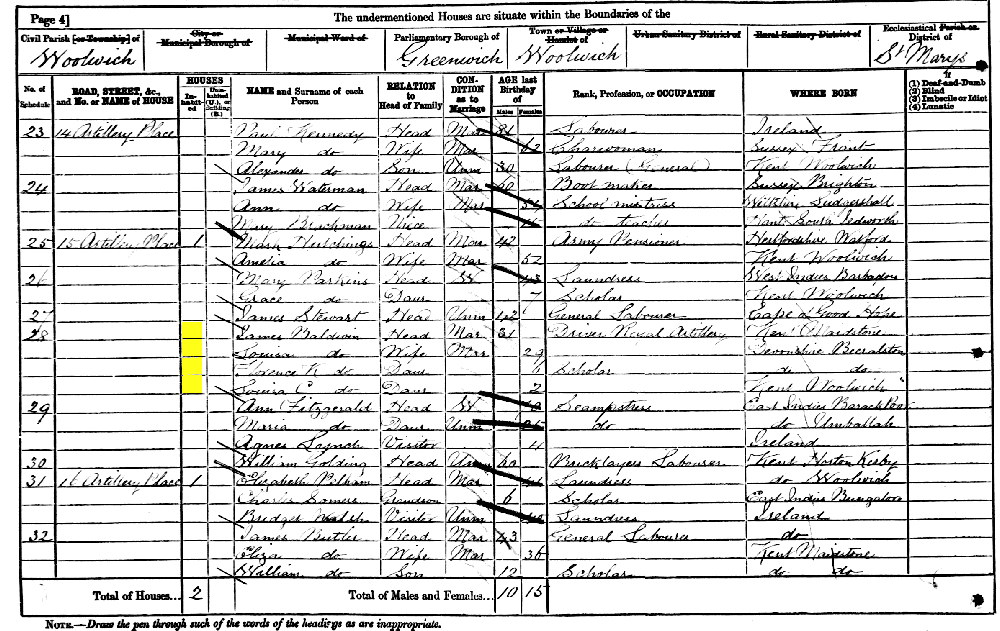 Page 4] The undermentioned Houses are situate within the Boundaries of the
Civil Parish [or Township] of City or Municipal Borough of Municipal Ward of Parliamentary Borough of Town or Village or Hamlet of Urban Sanitary District of Rural Sanitary District of Ecclesiastical Parish or District of
Woolwich Greenwich Woolwich St Marys
No. of Schedule ROAD, STREET, &c., and No. or NAME of HOUSE HOUSES In-habit-ed Unin-habited (U.), or Building (B.) NAME and Surname of each Person RELATION to Head of Family CON-DITION as to Marriage AGE last Birthday of Males Females Rank, Profession, or OCCUPATION WHERE BORN If (1) Deaf-and-Dumb (2) Blind (3) Imbecile or Idiot (4) Lunatic
23 14 Artillery Place Paul Kennedy Head Mar Labourer Ireland
Mary do Wife Mar 62 Charwoman Sussex
Alexander do Son Unm 30 Labourer (General) Kent Woolwich
24 James Waterman Head Mar Boot maker Sussex Brighton
Ann do Wife Mar School mistress Ludgershall
Mary Niece do teacher Hants South
25 15 Artillery Place 1 Mark Hutchings Head Mar 42 Army Pensioner Hertfordshire Watford
Amelia do Wife Mar 52 Kent Woolwich
26 Mary Parkins Head W Laundress West Indies Barbadoes
Grace do Daur 7 Scholar Kent Woolwich
27 James Stewart Head Unm 42 General Labourer Cape of Good Hope
28 James Baldwin Head Mar 31 Driver Royal Artillery Kent Maidstone
Louisa do Wife Mar 29 Devonshire
Florence K do Daur Scholar do do
Louisa C do Daur 2 Kent Woolwich
29 Ann Fitzgerald Head W Seampstress East Indies
Maria do Daur Unm do do Umballah
Agnes Visitor 4 Ireland
30 William Golding Head Un Bricklayers Labourer Kent Horton Kirby
31 16 Artillery Place 1 Elizabeth Head Mar Laundress do Woolwich
Charles Somers Grandson 6 Scholar East Indies
Bridget Walsh Visitor Unm Laundress Ireland
32 James Butler Head Mar 43 General Labourer do
Eliza do Wife Mar 36 Kent Maidstone
William do Son 12 Scholar do do
Total of Houses... 2 Total of Males and Females... 10 15
NOTE.—Draw the pen through such of the words of the headings as are inappropriate.